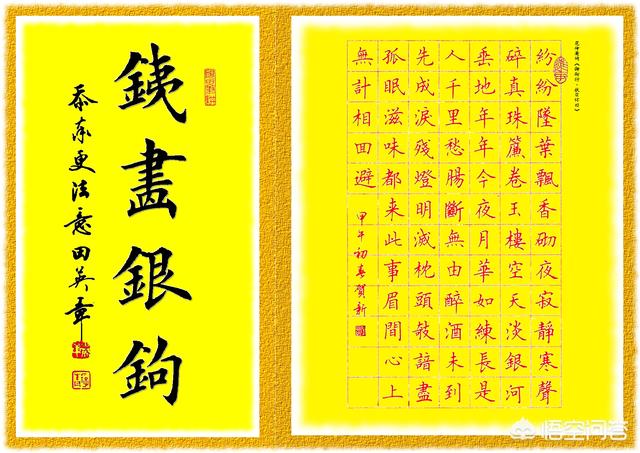 紛紛墜葉飄香砌夜寂靜寒聲
碎真珠簾卷玉樓空天淡銀河
垂地年年今夜月華如練長是
人千里愁腸斷無由醉酒未到
先成淚殘燈明滅枕頭攲諳盡
孤眠滋味都來此事眉間心上
無計相回避
甲午初春賀新
銕畫銀鉤
田英章
悟空问答